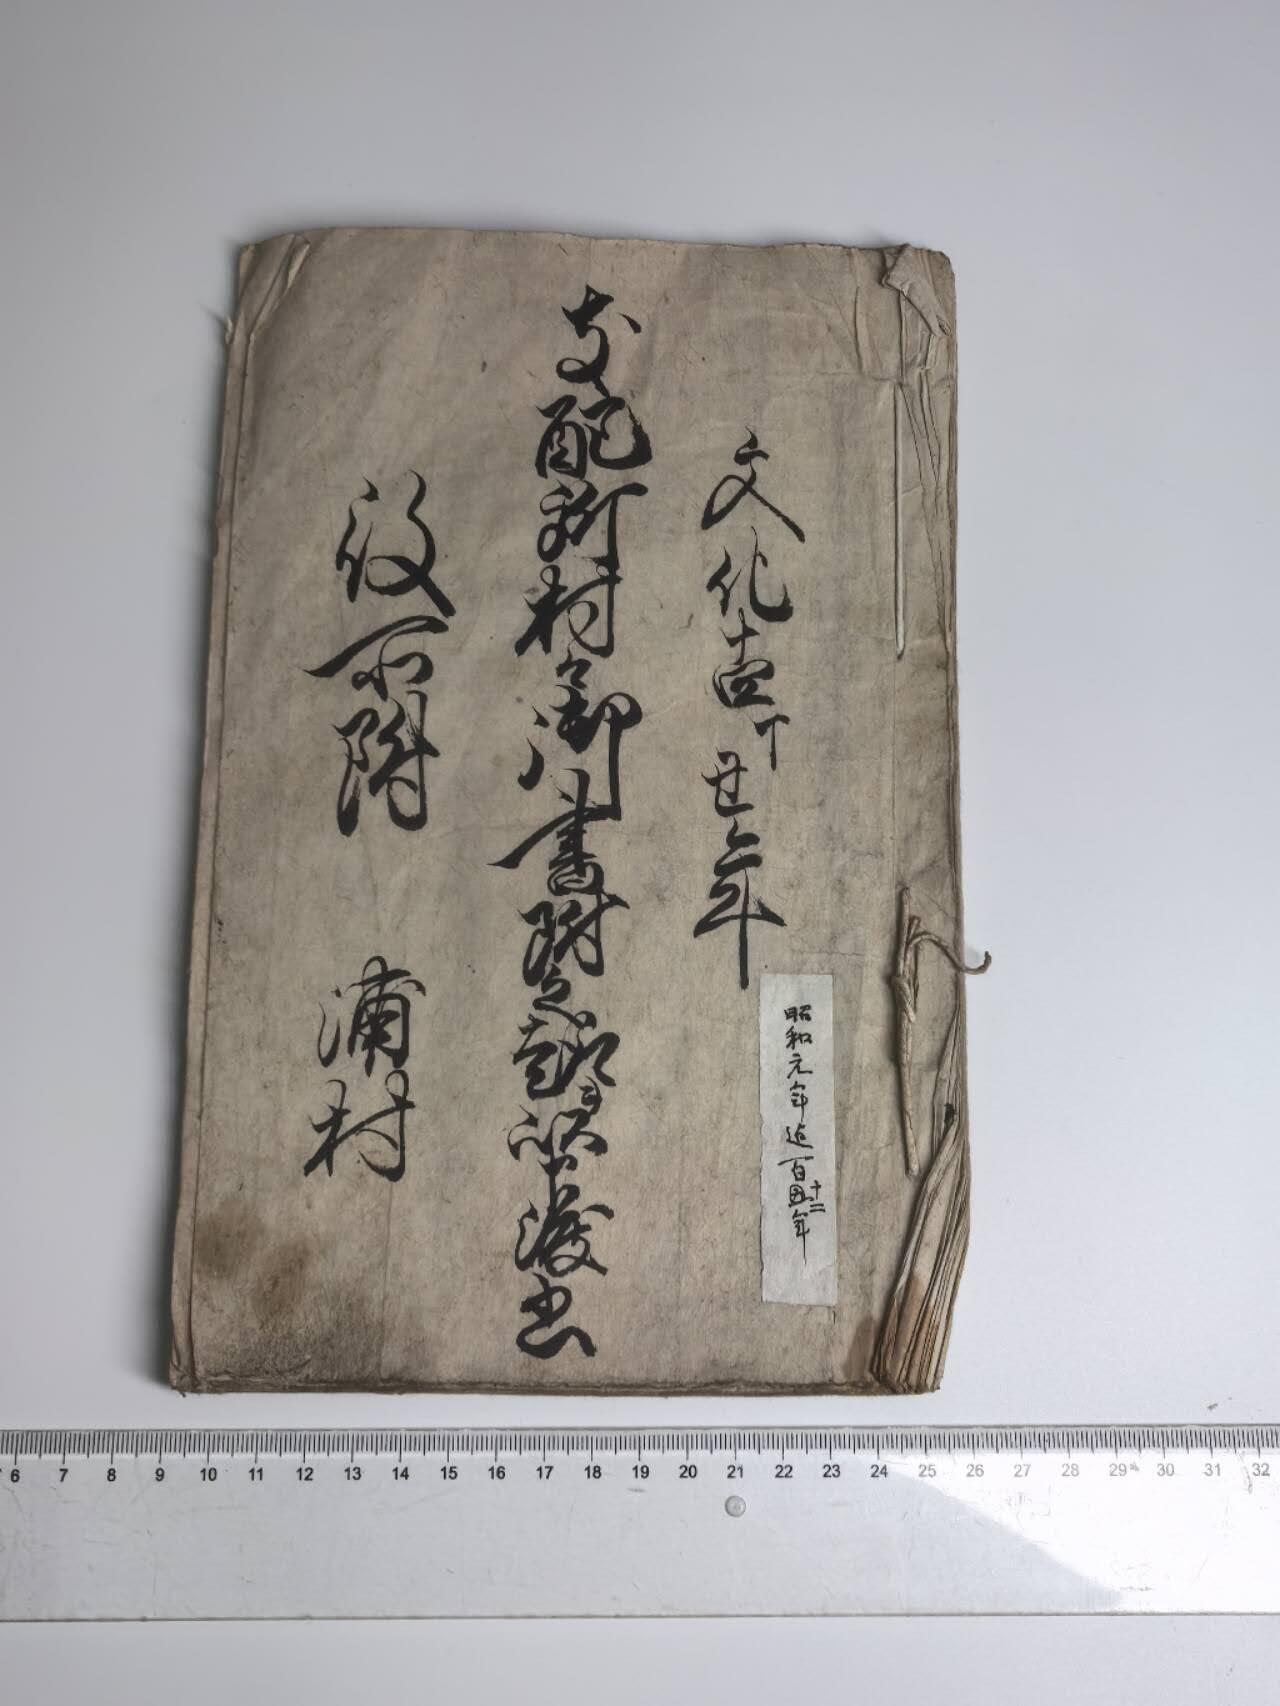 文化壱丁丑年
支配所村々御書附之趣被仰渡書
役所附 浦村
昭和元年迄百十二年
6 7 8 9 10 11 12 13 14 15 16 17 18 19 20 21 22 23 24 25 26 27 28 29 30 31 32